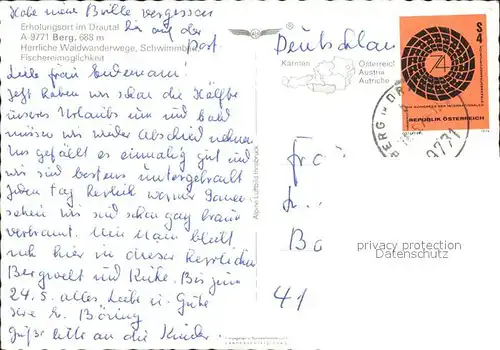 Habe meine Brille vergessen
bin auf der
Post.
Erholungsort im Drautal
A-9771 Berg, 688 m
Herrliche Waldwanderwege, Schwimmb
Fischereimöglichkeit
Liebe Frau Endemann!
Jetzt haben wir schon die Hälfte
unseres Urlaubs um und bald
müssen wir wieder Abschied nehmen
Uns gefällt es einmalig gut und
wir sind bestens untergebracht
Jeden Tag herrlich warmer
sehen wir sind schon ganz braun
verbrannt. Mein Mann bleibt
noch hier in dieser herrlichen
Bergwelt und Ruhe. Bis zum
24.5. alles Liebe u. Gute
Ihre E. Böring
Grüße bitte an die Kinder.
Alpine Luftbild Innsbruck
Deutschlan
Kärnten
Österreich
Austria
Autriche
S 4
REPUBLIK ÖSTERREICH
BERG IM DR
9771
Fr
Bo
41
privacy protection
Datenschutz